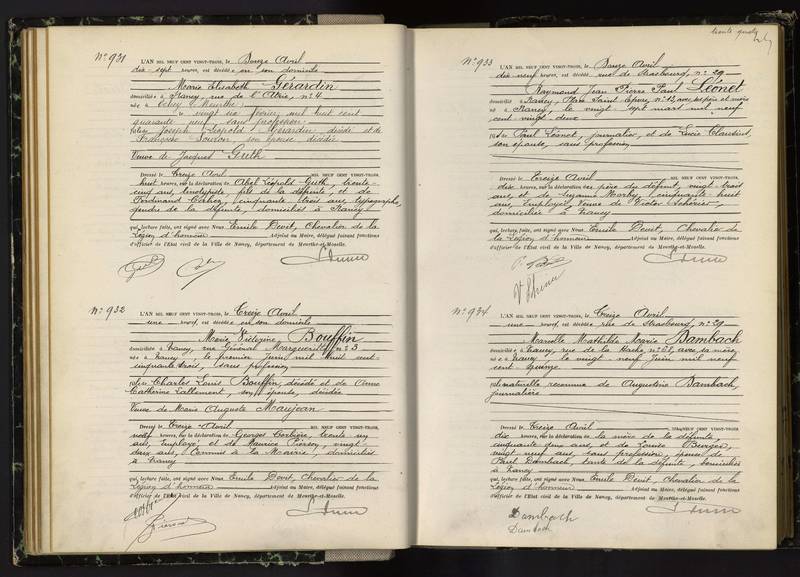 N° 931
L'AN MIL NEUF CENT VINGT-TROIS, le Douze Avril
dix-sept heures, est décédée en son domicile
Marie Elisabeth Gérardin
domiciliée à Nancy, rue de l'Atrie, n° 4
née à (Meurthe)
le vingt six février mil huit cent
quarante neuf, sans profession
fille Joseph Léopold Gérardin décédé et de
Françoise son épouse décédée
Veuve de Jacques Guth
Dressé le Treize Avril MIL NEUF CENT VINGT-TROIS,
huit heures, sur la déclaration de Abel Léopold Guth, trente
cinq ans, linotypiste, fils de la défunte, et de
Ferdinand cinquante trois ans, typographe,
gendre de la défunte, domiciliés à Nancy
qui, lecture faite, ont signé avec Nous Emile Devit, Chevalier de la
Légion d'honneur Adjoint au Maire, délégué faisant fonctions
d'officier de l'Etat civil de la Ville de Nancy, département de Meurthe-et-Moselle.
N° 932
L'AN MIL NEUF CENT VINGT-TROIS, le Treize Avril
une heure, est décédée en son domicile
Marie Bouffin
domiciliée à Nancy, rue Général Margueritte n° 3
née à Nancy le premier Juin mil huit cent
cinquante trois, sans profession
fille Charles Louis Bouffin, décédé et de Anne
Catherine Lallement, son épouse, décédée
Veuve de Marie Auguste Maujean
Dressé le Treize Avril MIL NEUF CENT VINGT-TROIS,
neuf heures, sur la déclaration de Georges trente un
ans, Employé et de Maurice Pierson, vingt
deux ans, Commis à la Mairie, domiciliés
à Nancy
qui, lecture faite, ont signé avec Nous Emile Devit, Chevalier de la
Légion d'honneur Adjoint au Maire, délégué faisant fonctions
d'officier de l'Etat civil de la Ville de Nancy, département de Meurthe-et-Moselle.
N° 933
L'AN MIL NEUF CENT VINGT-TROIS, le Douze Avril
dix-neuf heures, est décédé rue de Strasbourg, n° 29
Raymond Jean Pierre Paul Léonet
domicilié à Nancy, Place Saint Epvre n° 12, avec ses père et mère
né à Nancy, le vingt sept mars mil neuf
cent vingt deux
fils de Paul Léonet, journalier, et de Lucie Claudine
son épouse, sans profession
Dressé le Treize Avril MIL NEUF CENT VINGT-TROIS,
dix heures, sur la déclaration du père du défunt, vingt trois
ans, et de Suzanne cinquante huit
ans, Employée, Veuve de Victor
domiciliée à Nancy
qui, lecture faite, ont signé avec Nous Emile Devit, Chevalier de
la Légion d'honneur Adjoint au Maire, délégué faisant fonctions
d'officier de l'Etat civil de la Ville de Nancy, département de Meurthe-et-Moselle.
N° 934
L'AN MIL NEUF CENT VINGT-TROIS, le Treize Avril
une heure, est décédée rue de Strasbourg, n° 29
Marcelle Mathilde Marie Bambach
domiciliée à Nancy rue de la Hache n° 58, avec sa mère,
née à Nancy le vingt neuf Juin mil neuf
cent quinze
fille naturelle reconnue de Augustine Bambach,
journalière
Dressé le Treize Avril MIL NEUF CENT VINGT-TROIS,
dix heures, sur la déclaration de la mère de la défunte,
cinquante deux ans, et de Louise
vingt neuf ans, sans profession, épouse de
Paul Dambach, tante de la défunte, domiciliées
à Nancy
qui, lecture faite, ont signé avec Nous Emile Devit, Chevalier de la
Légion d'honneur Adjoint au Maire, délégué faisant fonctions
d'officier de l'Etat civil de la Ville de Nancy, département de Meurthe-et-Moselle.
Dambach
Dambach